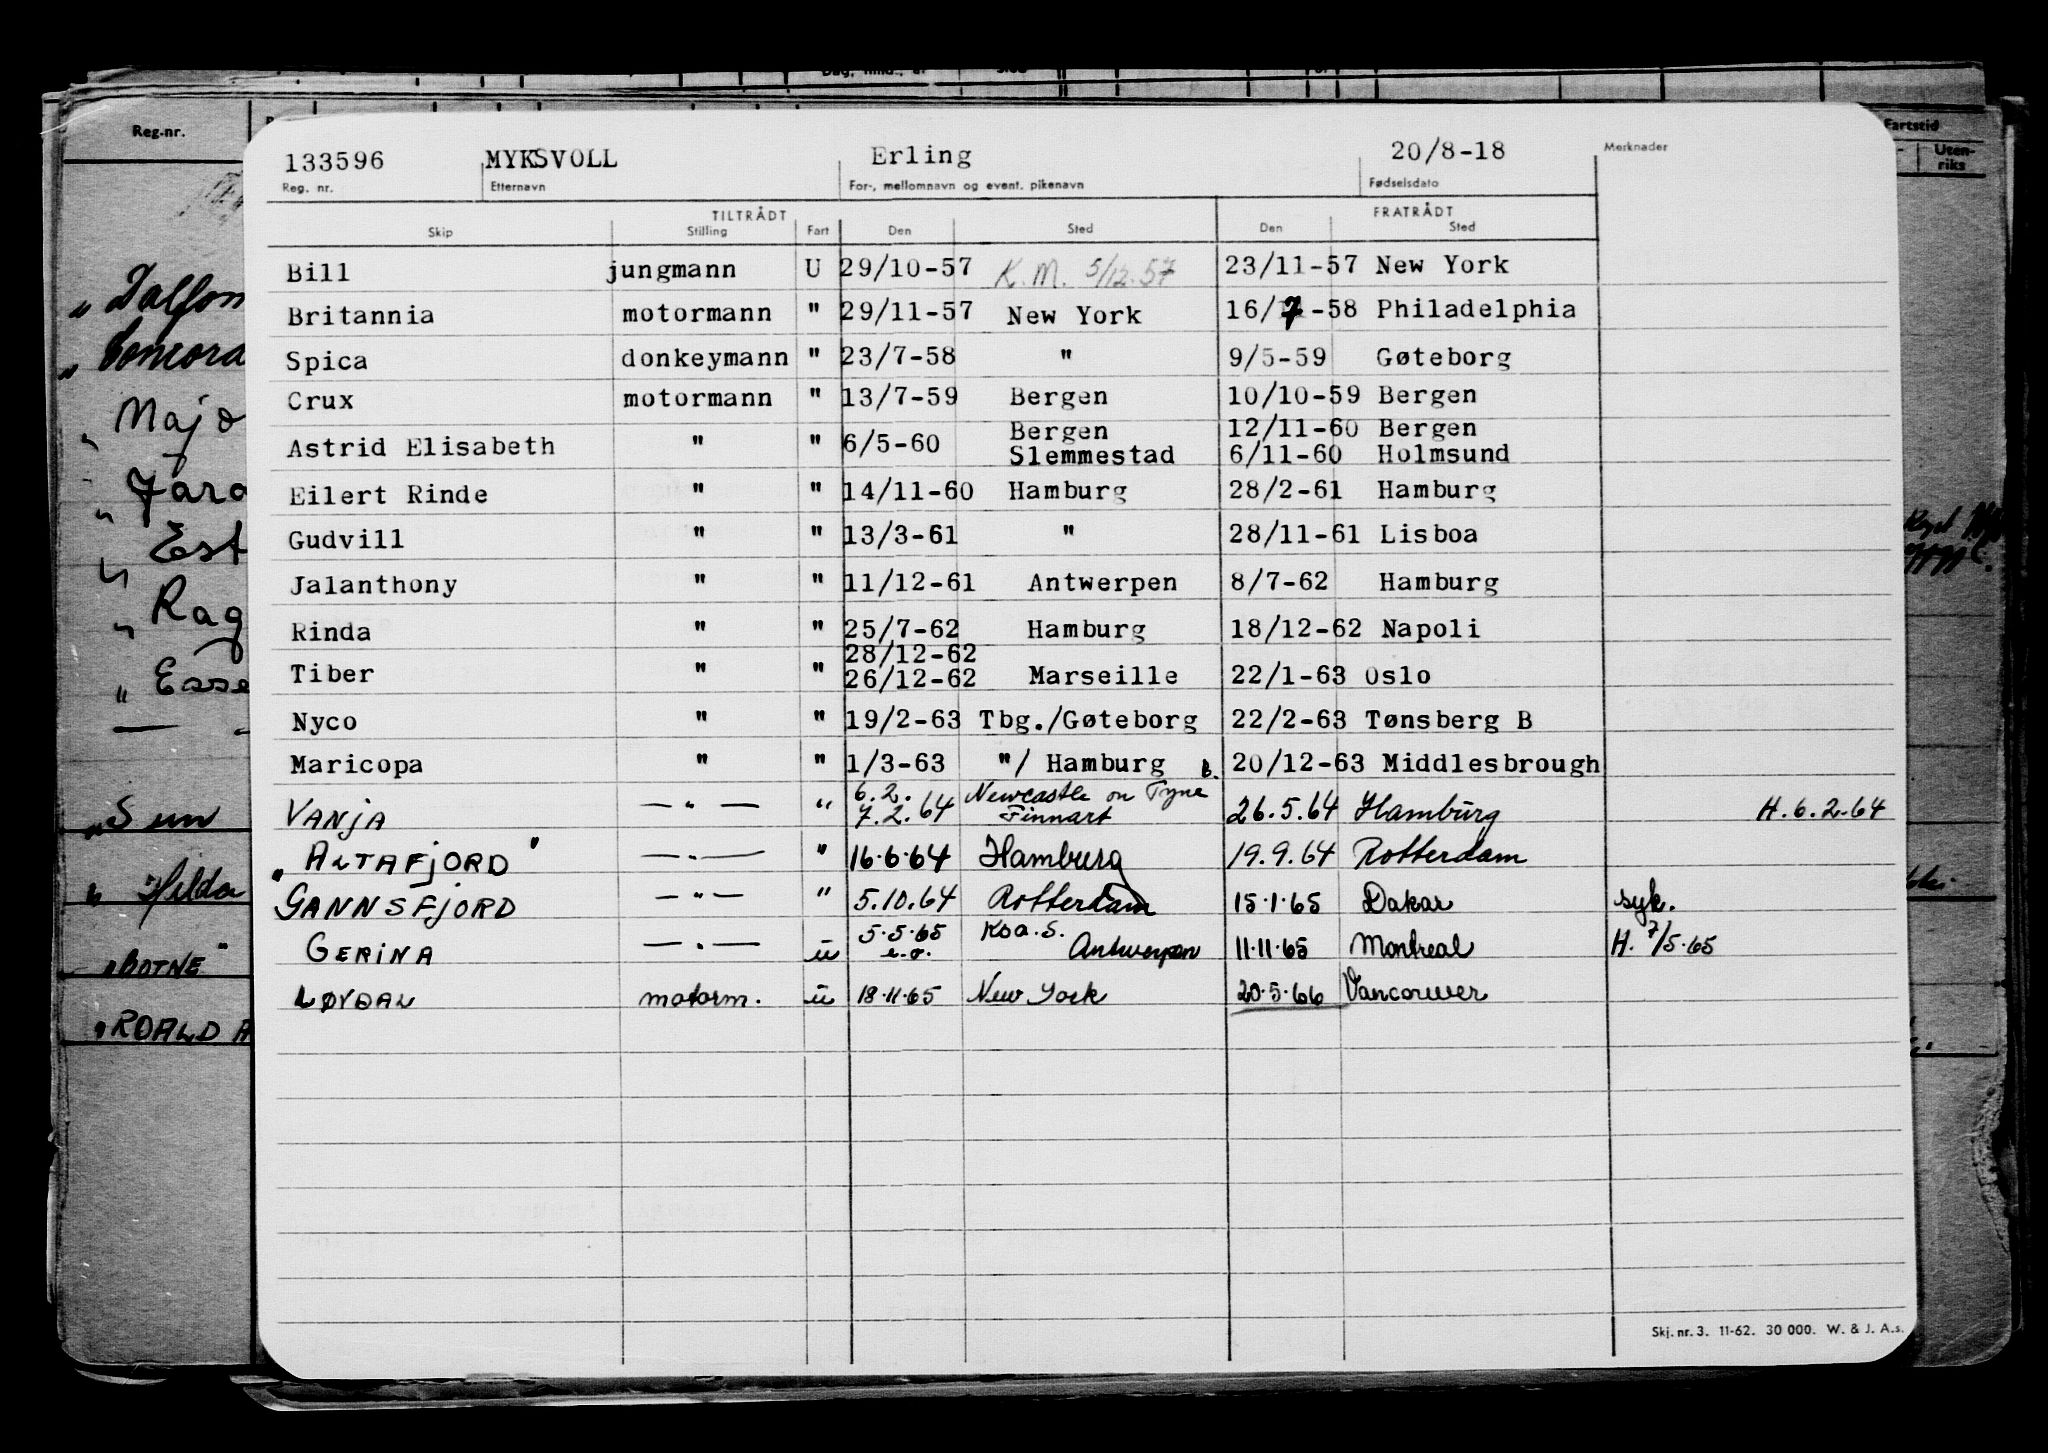 Reg-nr.
Fartstid
Uten-
riks
133596 MYKSVOLL Erling 20/8-18 Merknader
Reg. nr. Etternavn For-, mellomnavn og event. pikenavn Fødselsdato
TILTRÅDT FRATRÅDT
Skip Stilling Fart Den Sted Den Sted
Bill jungmann U 29/10-57 K.M. 5/12.57 23/11-57 New York
Britannia motormann " 29/11-57 New York 16/7-58 Philadelphia
Spica donkeymann " 23/7-58 " 9/5-59 Gøteborg
Crux motormann " 13/7-59 Bergen 10/10-59 Bergen
Bergen 12/11-60 Bergen
Astrid Elisabeth " " 6/5-60 Slemmestad 6/11-60 Holmsund
Eilert Rinde " " 14/11-60 Hamburg 28/2-61 Hamburg
Gudvill " " 13/3-61 " 28/11-61 Lisboa
Jalanthony " " 11/12-61 Antwerpen 8/7-62 Hamburg
Rinda " " 25/7-62 Hamburg 18/12-62 Napoli
28/12-62
Tiber " " 26/12-62 Marseille 22/1-63 Oslo
Nyco " " 19/2-63 Tbg./Gøteborg 22/2-63 Tønsberg B
Maricopa " " 1/3-63 "/ Hamburg B. 20/12-63 Middlesbrough
6.2. Newcastle on Tyne
VANJA — " — " 7.2.64 Finnart 26.5.64 Hamburg H. 6.2.64
"ALTAFJORD" — " — " 16.6.64 Hamburg 19.9.64 Rotterdam
GANNSFJORD — " — " 5.10.64 Rotterdam 15.1.65 Dakar syk.
5.5.65 Ksa.S.
GERINA — " — u e.o. Antwerpen 11.11.65 Montreal H. 7/5.65
LØVDAL motorm. u 18.11.65 New York 20.5.66 Vancouver
Skj. nr. 3. 11-62. 30 000. W. & J. A.s.
" Majo
" Est
" Rag
" Esse
"Sun
" Hilda
"BOTNE"
"ROALD A